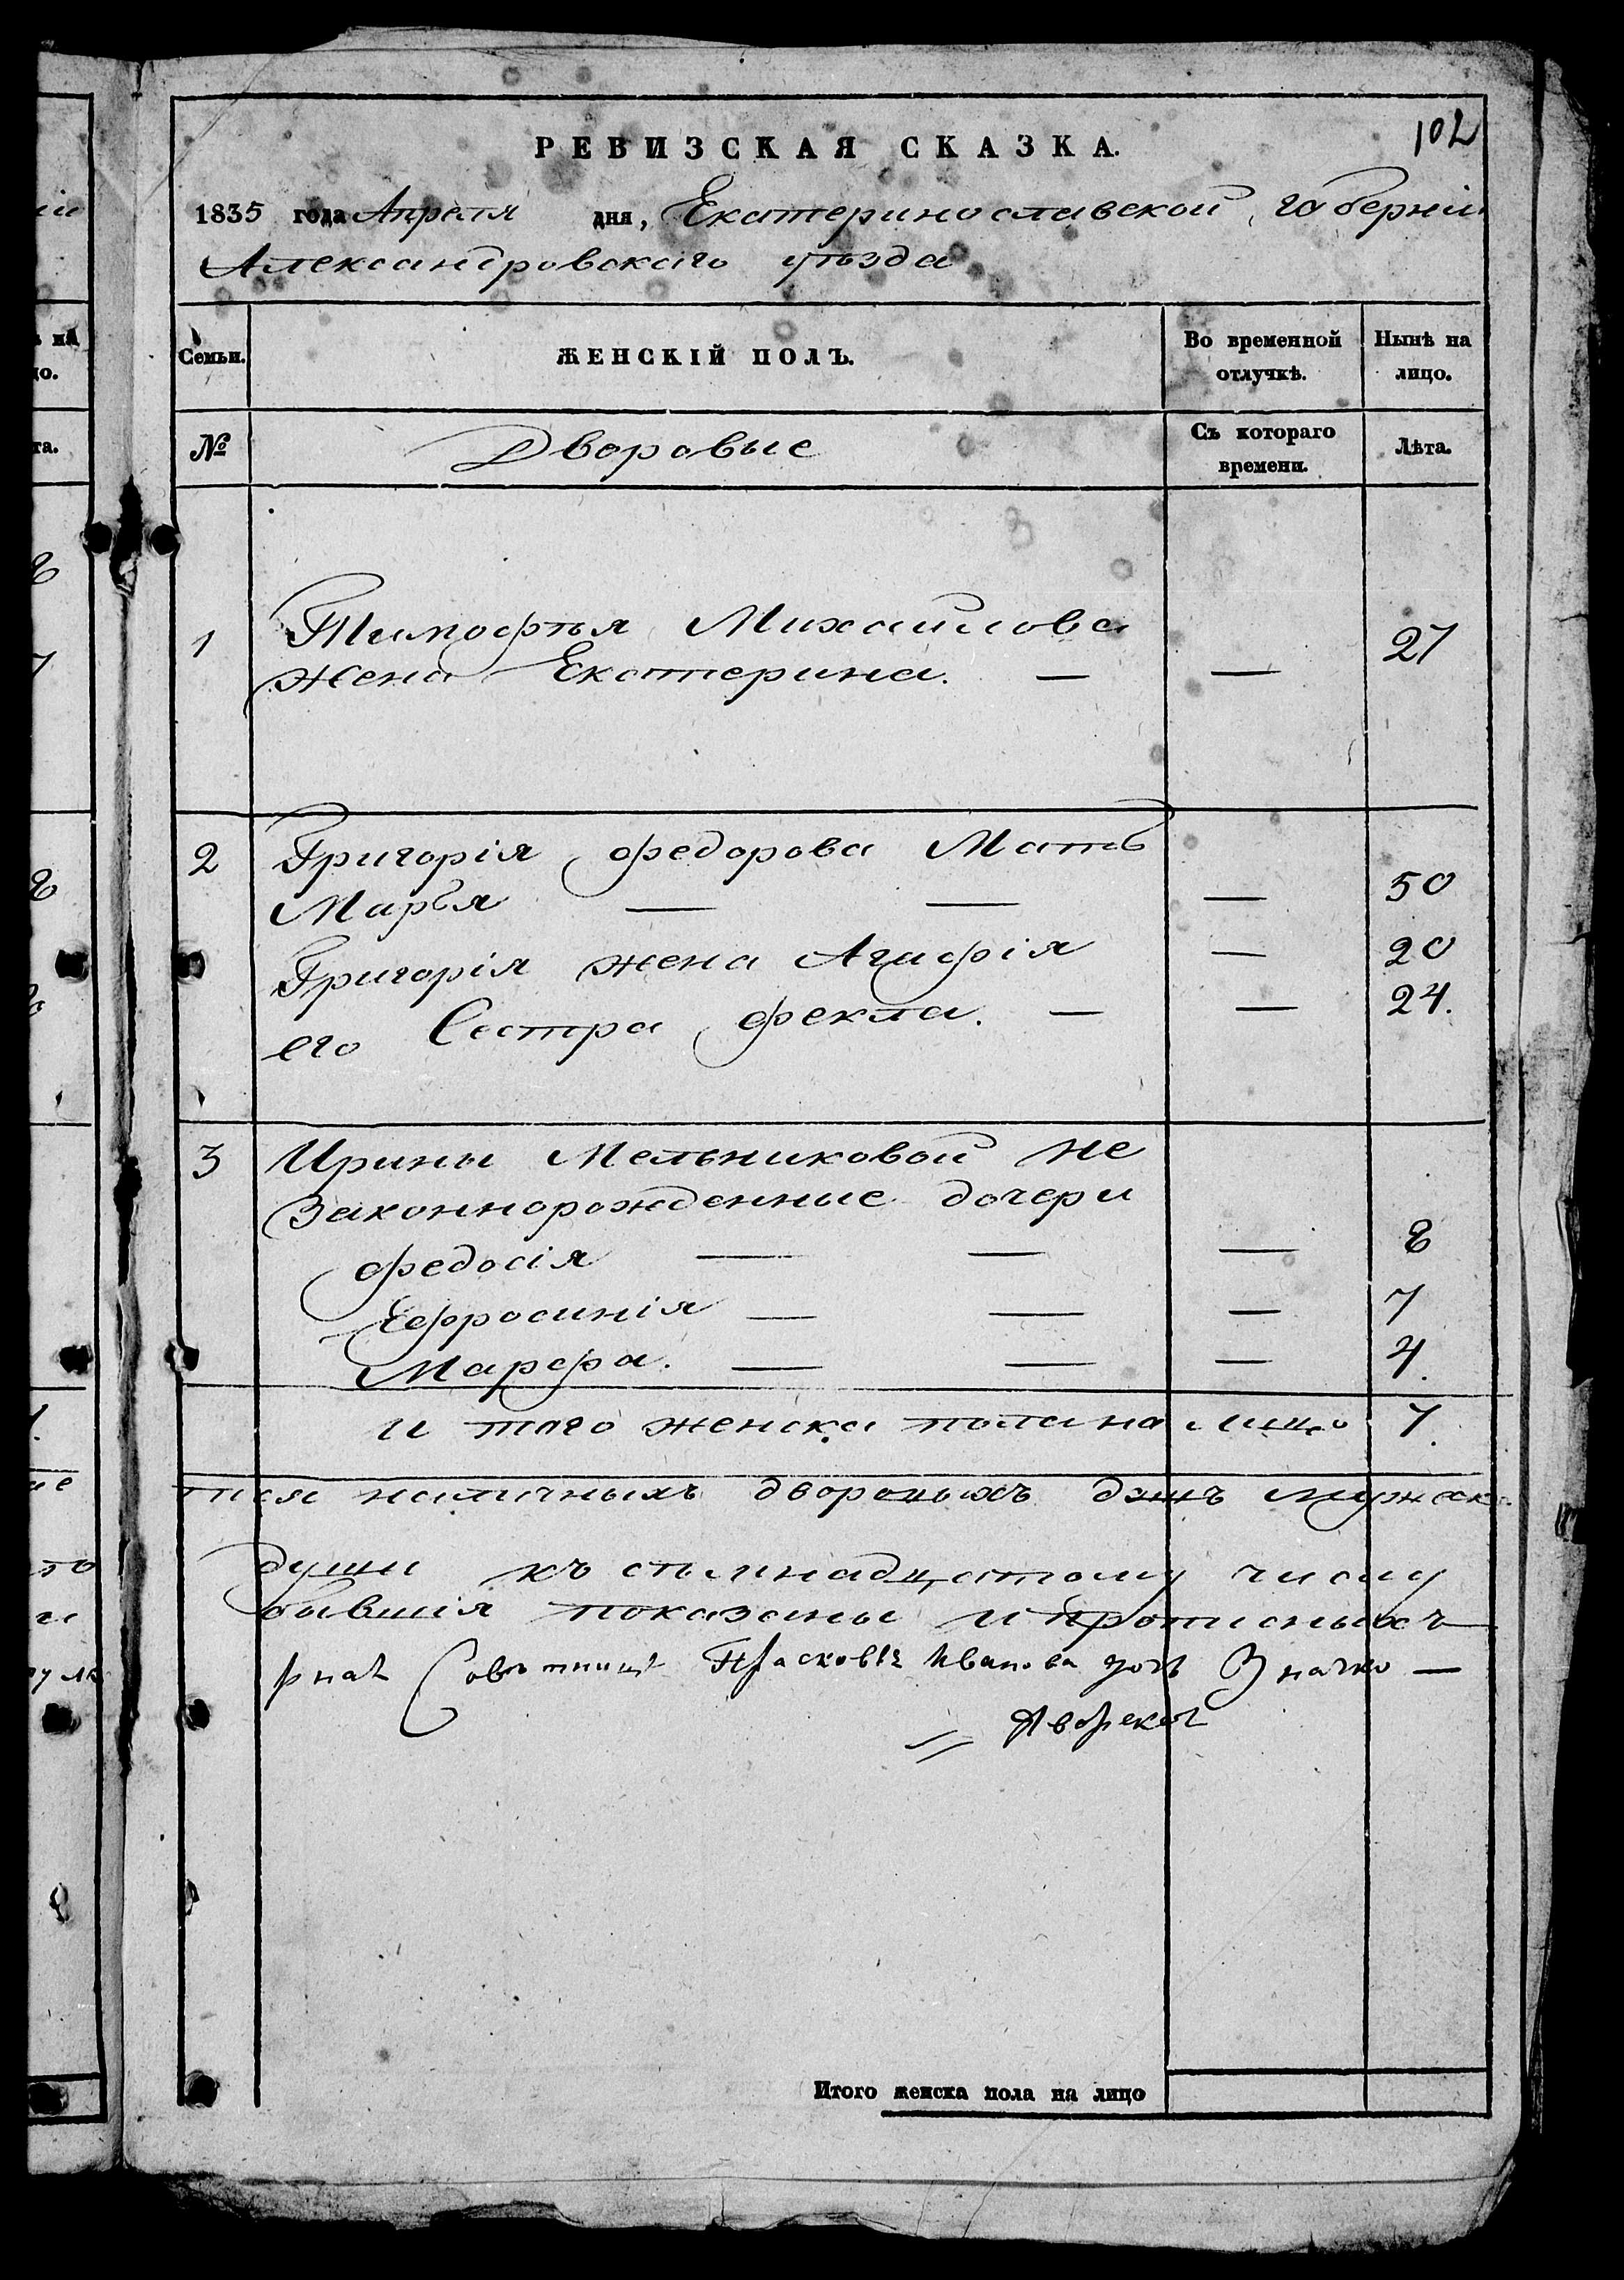 102
РЕВИЗСКАЯ СКАЗКА.
1835 года Апреля дня, Екатеринославской губерніи
Александровскаго уѣзда
Семьи. ЖЕНСКІЙ ПОЛЪ. Во временной отлучкѣ. Нынѣ на лицо.
№ Дворовые Съ котораго времени. Лѣта.
1 Тимофѣя Михайлова
жена Екатерина. — — 27
2 Григорія Федорова Мать
Марья — — — 50
Григорія жена Агафія — 20
его Сестра Фекла. — — 24.
3 Ирины Мельниковой не
Законнорожденные дочери
Федосія — — — 8
Ефросинія — — — 7
Марфа. — — — 4.
и того женска пола на лицо 7.
наличныхъ дворовыхъ душъ мужеск
души къ осьмнадцатому числу
бывшія показаны и прописныхъ
Совѣтница Прасковья Иванова дочь Значко —
Яворская
Итого женска пола на лицо